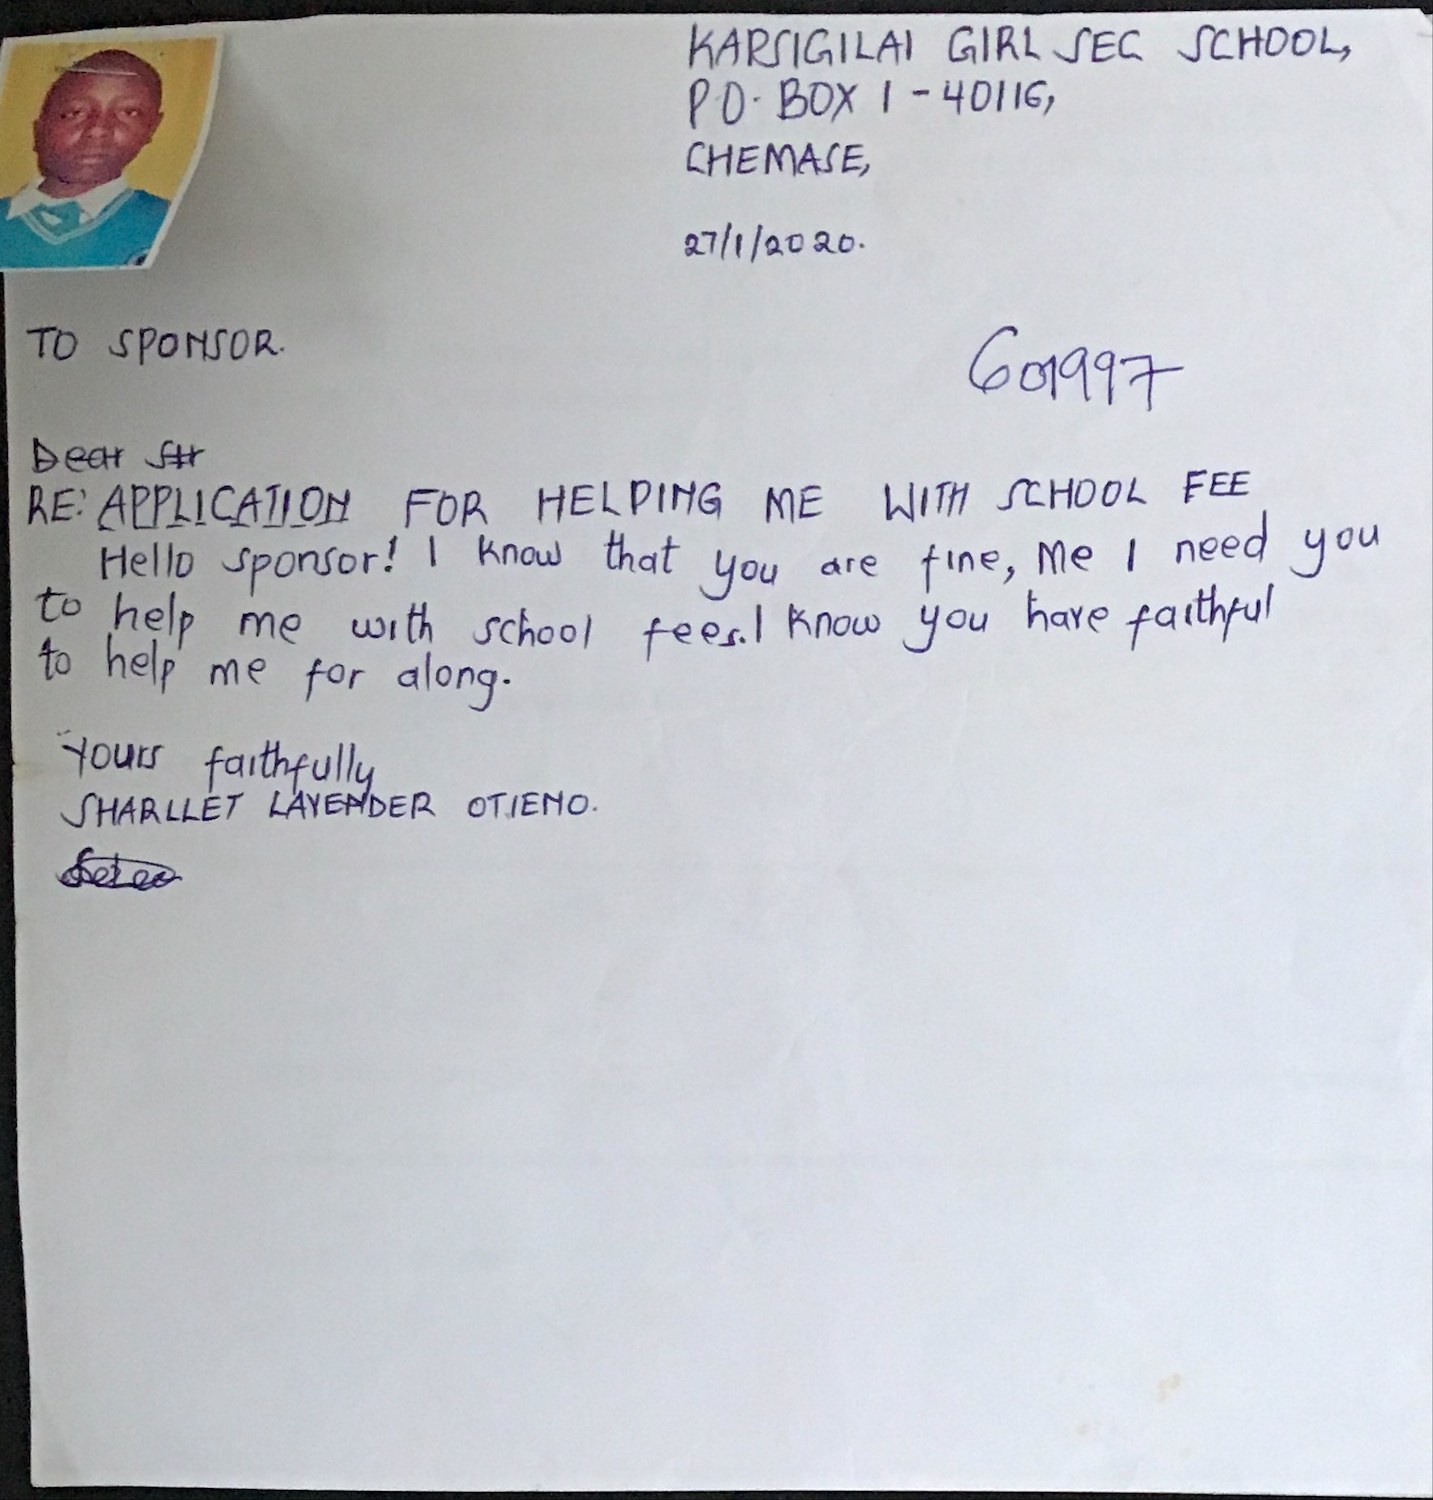 KARSIGILAI GIRL SEC SCHOOL,
P.O. BOX 1 - 40116,
CHEMASE,
27/1/2020.
TO SPONSOR.
601997
Dear Sir
RE: APPLICATION FOR HELPING ME WITH SCHOOL FEE
Hello sponsor! I know that you are fine, Me I need you
to help me with school fees. I know you have faithful
to help me for along.
Yours faithfully
SHARLLET LAVENDER OTIENO.